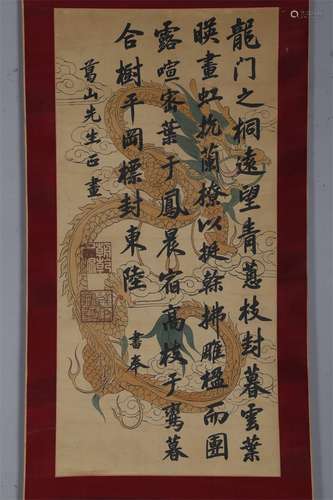 龍门之桐遠望青蔥枝封暮雲葉
暎畫虹抗蘭橑以挺榦拂雕楹而團
露喧密葉于鳳晨宿高枝于鸞暮
合樹平岡標封東陸
書奉
葛山先生正畫